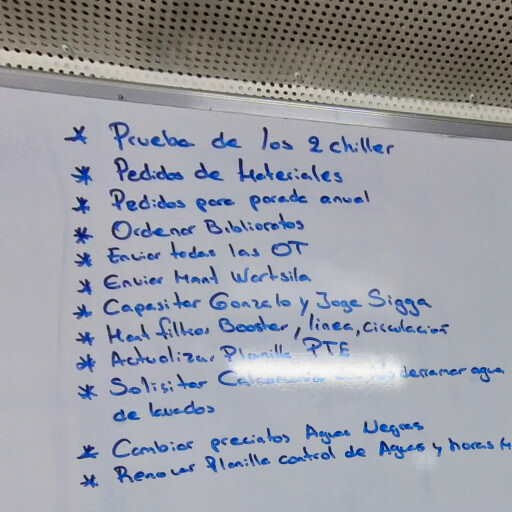 * Prueba de los 2 chiller
* Pedidos de Materiales
* Pedidos para parada anual
* Ordenar Biblioratos
* Enviar todas las OT
* Enviar Mant Wartsila
* Capasitar Gonzalo y Joge Sigga
* Mant filtros Booster, linea, circulación
* Actualizar Planilla PTE
* Solisitar derramar agua
de lavados
* Cambiar precintos Aguas Negras
* Renovar Planilla control de Aguas y horas